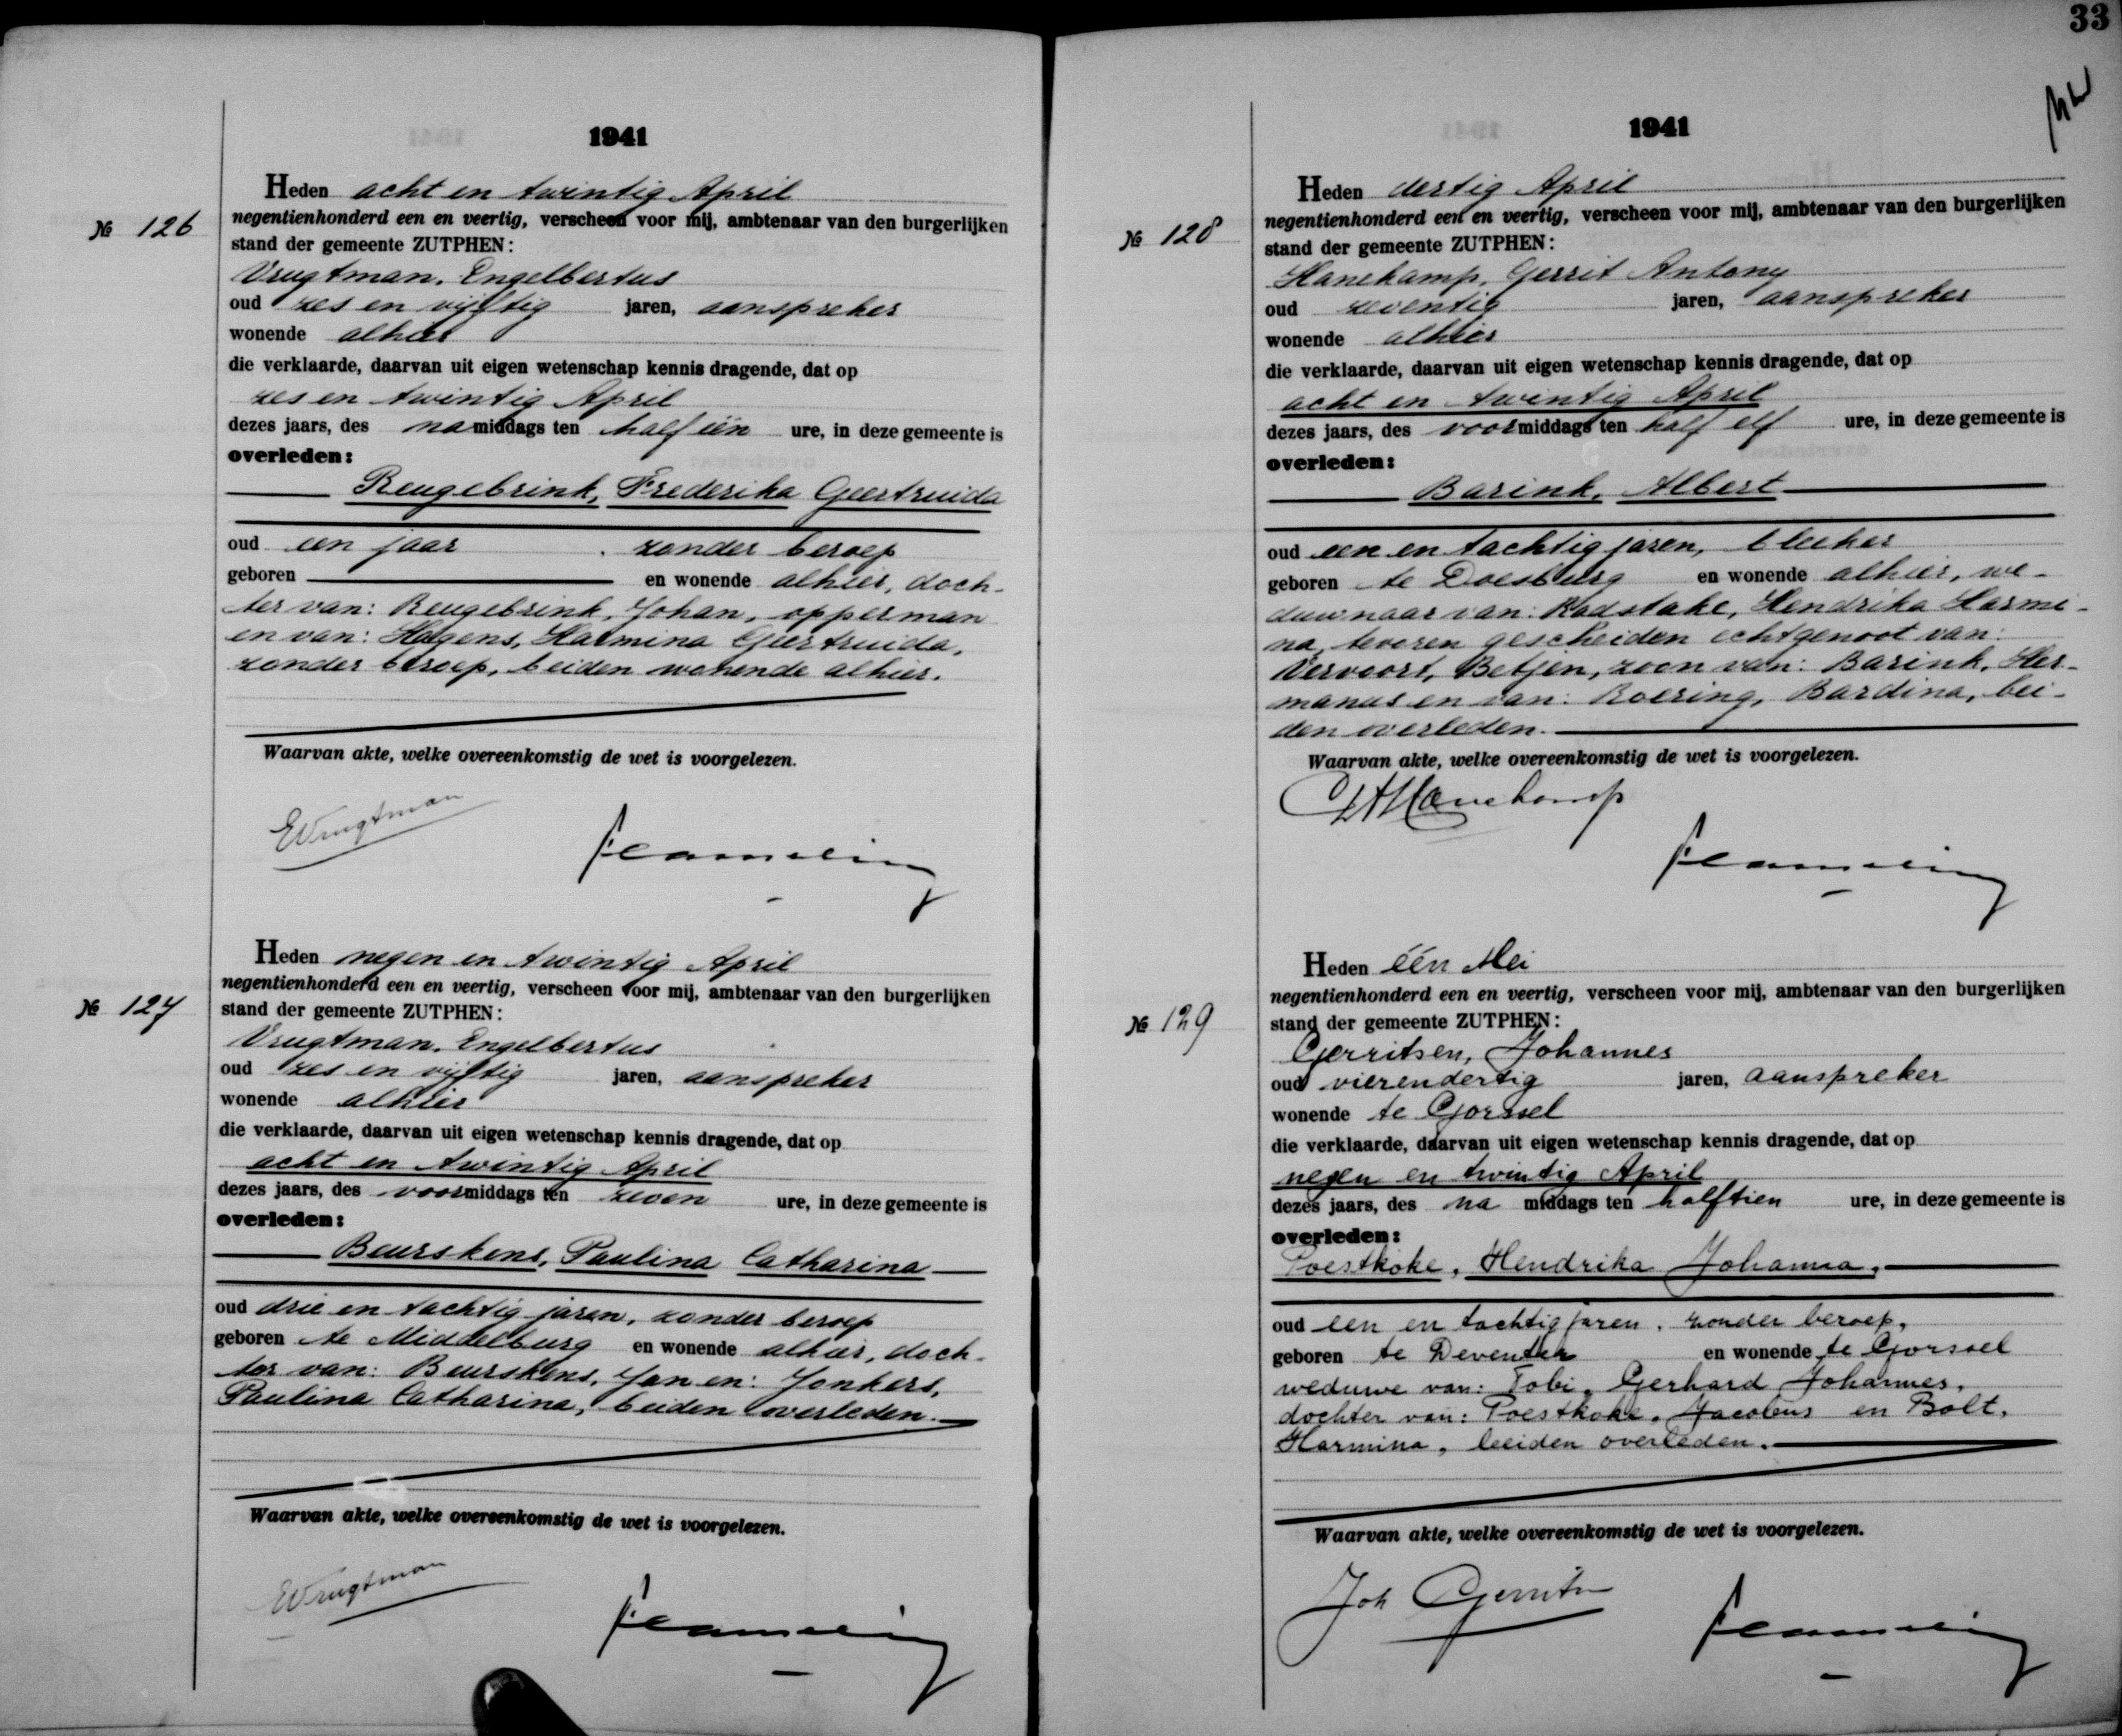 1941
Heden acht en twintig April
№ 126
negentienhonderd een en veertig, verscheen voor mij, ambtenaar van den burgerlijken
stand der gemeente ZUTPHEN:
Vrugtman, Engelbertus
oud zes en vijftig jaren, aanspreker
wonende alhier
die verklaarde, daarvan uit eigen wetenschap kennis dragende, dat op
zes en twintig April
dezes jaars, des namiddags ten half één ure, in deze gemeente is
overleden:
Reugebrink, Frederika Geertruida
oud een jaar, zonder beroep
geboren en wonende alhier, doch-
ter van: Reugebrink, Johan, opperman
en van: Hagens, Harmina Geertruida,
zonder beroep, beiden wonende alhier.
Waarvan akte, welke overeenkomstig de wet is voorgelezen.
EVrugtman
Heden negen en twintig April
negentienhonderd een en veertig, verscheen voor mij, ambtenaar van den burgerlijken
№ 127
stand der gemeente ZUTPHEN:
Vrugtman, Engelbertus
oud zes en vijftig jaren, aanspreker
wonende alhier
die verklaarde, daarvan uit eigen wetenschap kennis dragende, dat op
acht en twintig April
dezes jaars, des voormiddags ten zeven ure, in deze gemeente is
overleden:
Beurskens, Paulina Catharina
oud drie en tachtig jaren, zonder beroep
geboren te Middelburg en wonende alhier, doch-
ter van: Beurskens, Jan en: Jonkers,
Paulina Catharina, beiden overleden.
Waarvan akte, welke overeenkomstig de wet is voorgelezen.
EVrugtman
33
1941
Heden dertig April
negentienhonderd een en veertig, verscheen voor mij, ambtenaar van den burgerlijken
№ 128
stand der gemeente ZUTPHEN:
Hanekamp, Gerrit Antony
oud zeventig jaren, aanspreker
wonende alhier
die verklaarde, daarvan uit eigen wetenschap kennis dragende, dat op
acht en twintig April
dezes jaars, des voormiddags ten half elf ure, in deze gemeente is
overleden:
Barink, Albert
oud een en tachtig jaren, bleeker
geboren te Doesburg en wonende alhier, we-
duwnaar van: Radstake, Hendrika Harmi-
na, tevoren gescheiden echtgenoot van:
Vervoort, Betjen, zoon van: Barink, Her-
manus en van: Roering, Bardina, bei-
den overleden.
Waarvan akte, welke overeenkomstig de wet is voorgelezen.
GAHanekamp
Heden één Mei
negentienhonderd een en veertig, verscheen voor mij, ambtenaar van den burgerlijken
№ 129
stand der gemeente ZUTPHEN:
Gerritsen, Johannes
oud vierendertig jaren, aanspreker
wonende te Gorssel
die verklaarde, daarvan uit eigen wetenschap kennis dragende, dat op
negen en twintig April
dezes jaars, des na middags ten half tien ure, in deze gemeente is
overleden:
Poestkoke, Hendrika Johanna,
oud een en tachtig jaren, zonder beroep,
geboren te Deventer en wonende te Gorssel
weduwe van: Tobi, Gerhard Johannes,
dochter van: Poestkoke, Jacobus en Bolt,
Harmina, beiden overleden.
Waarvan akte, welke overeenkomstig de wet is voorgelezen.
Joh Gerritsen